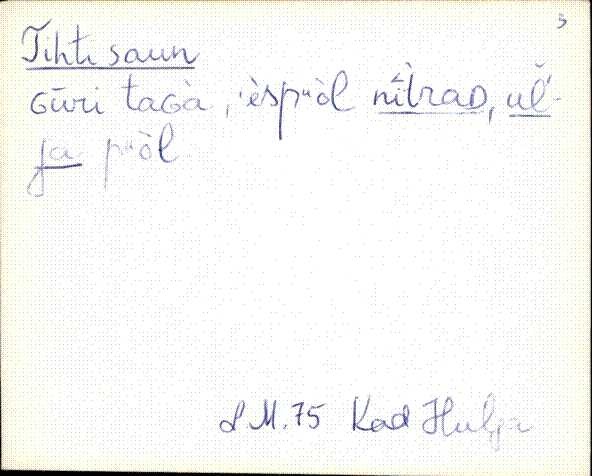 3
Tihti saun
Gūri taGà, 'èspuòl nitraD, ul̆-
ja puòl
M.75 Kad Hulja